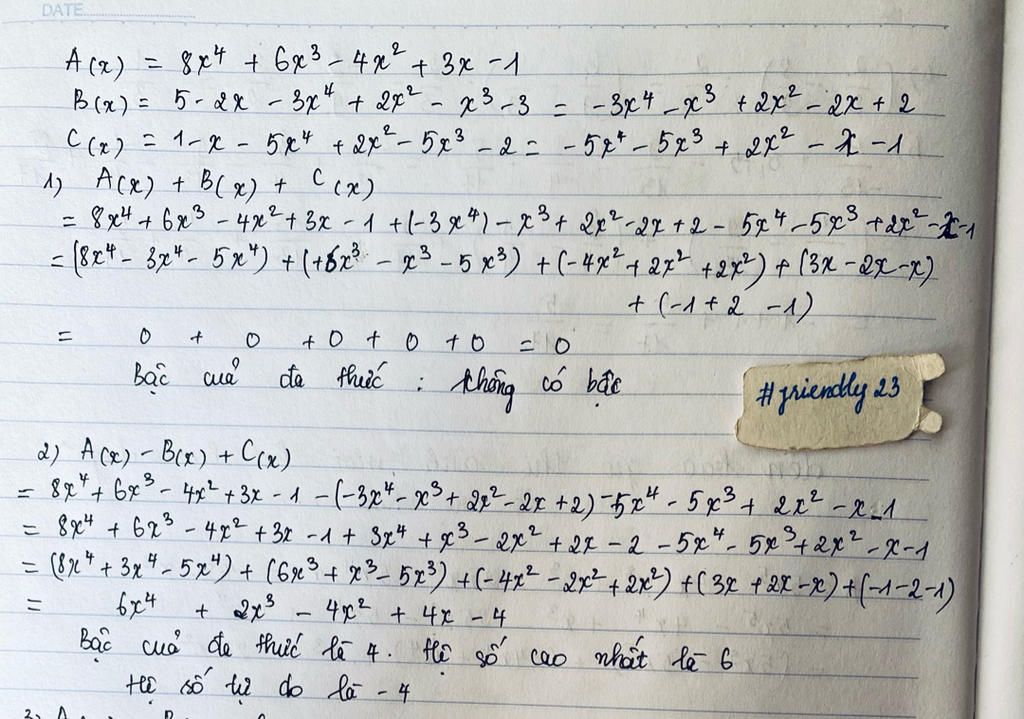 DATE
A(x) = 8x⁴ + 6x³ - 4x² + 3x - 1
B(x) = 5 - 2x - 3x⁴ + 2x² - x³ - 3 = -3x⁴ - x³ + 2x² - 2x + 2
C(x) = 1 - x - 5x⁴ + 2x² - 5x³ - 2 = -5x⁴ - 5x³ + 2x² - x - 1
1) A(x) + B(x) + C(x)
= 8x⁴ + 6x³ - 4x² + 3x - 1 + (-3x⁴) - x³ + 2x² - 2x + 2 - 5x⁴ - 5x³ + 2x² - x - 1
= (8x⁴ - 3x⁴ - 5x⁴) + (+6x³ - x³ - 5x³) + (-4x² + 2x² + 2x²) + (3x - 2x - x)
+ (-1 + 2 - 1)
= 0 + 0 + 0 + 0 + 0 = 0
Bậc cuả đa thức : không có bậc
#friendly 23
2) A(x) - B(x) + C(x)
= 8x⁴ + 6x³ - 4x² + 3x - 1 - (-3x⁴ - x³ + 2x² - 2x + 2) - 5x⁴ - 5x³ + 2x² - x - 1
= 8x⁴ + 6x³ - 4x² + 3x - 1 + 3x⁴ + x³ - 2x² + 2x - 2 - 5x⁴ - 5x³ + 2x² - x - 1
= (8x⁴ + 3x⁴ - 5x⁴) + (6x³ + x³ - 5x³) + (-4x² - 2x² + 2x²) + (3x + 2x - x) + (-1 - 2 - 1)
= 6x⁴ + 2x³ - 4x² + 4x - 4
Bậc cuả đa thức là 4. Hệ số cao nhất là 6
Hệ số tự do là - 4